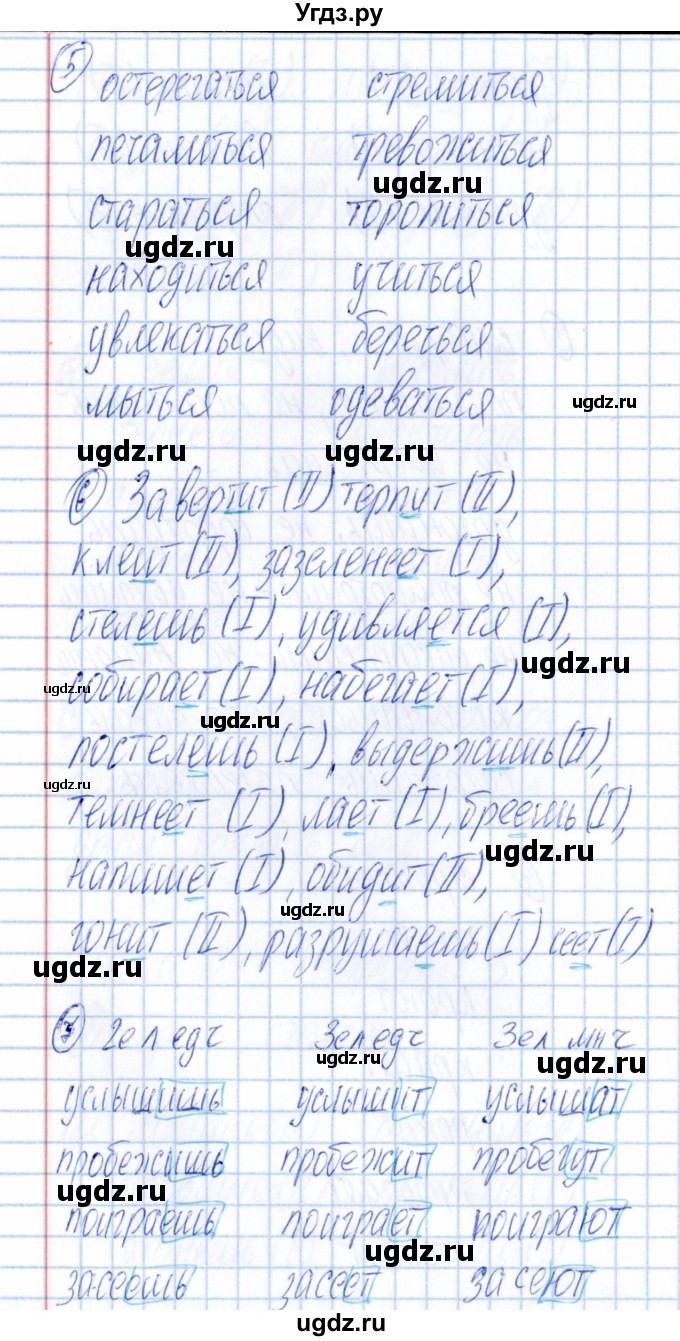 Угдз.ру
5
остерегаться стремиться
печалиться тревожиться
ugdz.ru
стараться торопиться
ugdz.ru
находиться учиться
увлекаться беречься
мыться одеваться ugdz.ru
ugdz.ru ugdz.ru
6 Завертит (II) терпит (II),
клеит (II), зазеленеет (I),
стелешь (I), удивляется (I),
ugdz.ru
собирает (I), набегает (I),
ugdz.ru ugdz.ru
постелешь (I), выдержишь (II),
ugdz.ru
темнеет (I), лает (I), бреешь (I),
ugdz.ru
напишет (I), обидит (II),
ugdz.ru
гонит (II), разрушаешь (I) сеет (I)
ugdz.ru
7 2е л ед ч 3е л ед ч 3е л мн ч
ugdz.ru ugdz.ru
услышишь услышит услышат
пробежишь пробежит пробегут
ugdz.ru
поиграешь поиграет поиграют
ugdz.ru
засеешь засеет засеют
ugdz.ru